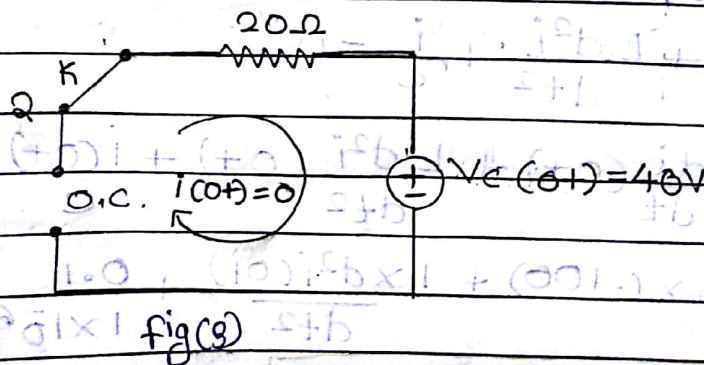 20Ω
K
2
O.C. i(0+)=0
+
-
Vc(0+)=40V
fig(3)